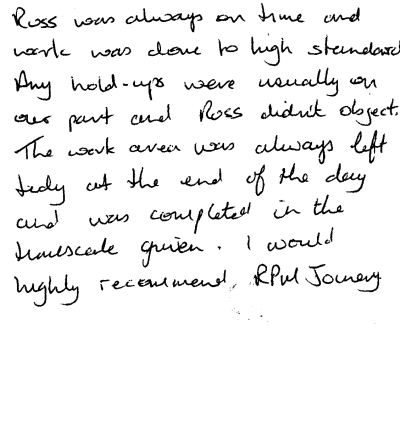 Ross was always on time and
work was done to high standard
Any hold-ups were usually on
our part and Ross didn't object.
The work area was always left
tidy at the end of the day
and was completed in the
timescale given. I would
highly recommend RPM Joinery